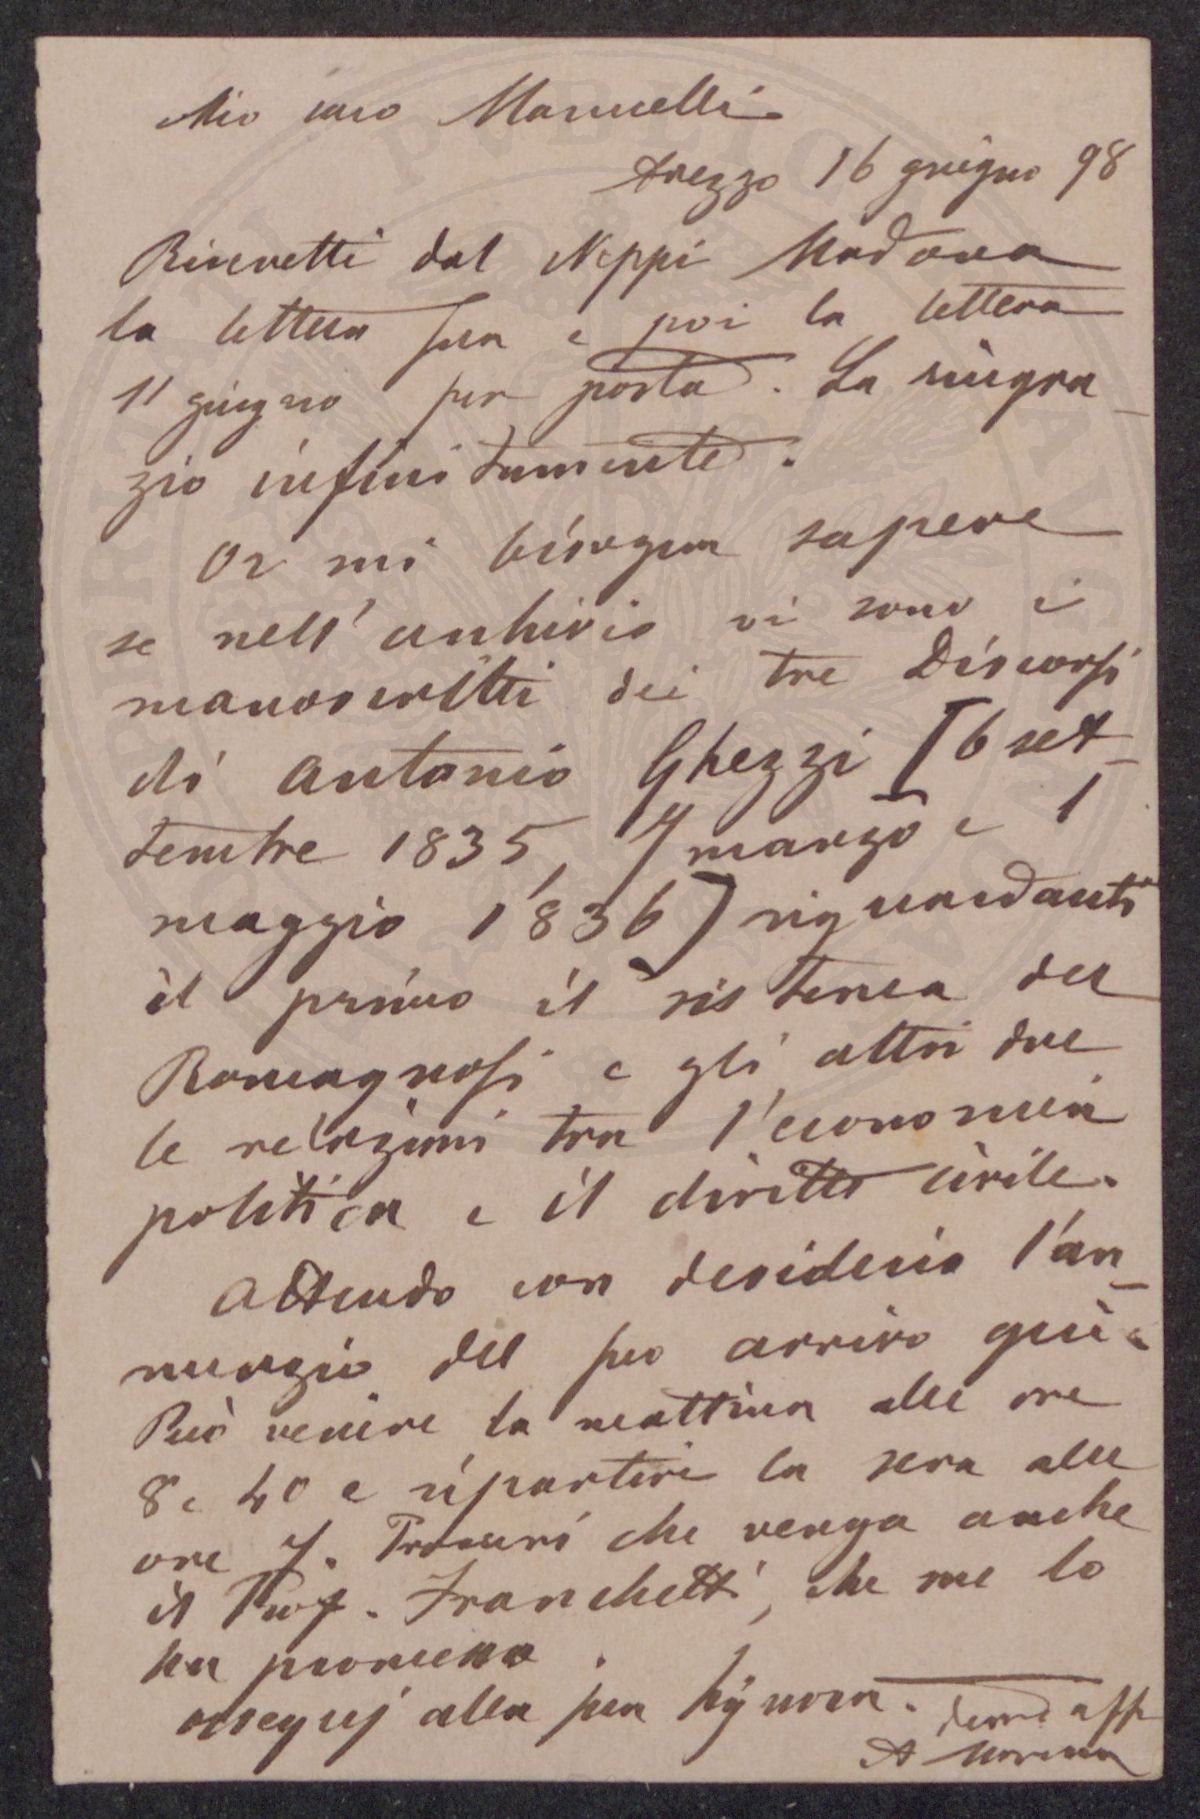 Mio caro Marucelli
Arezzo 16 giugno 98
Ricevetti dal Neppi Modona
la lettera sua e poi la lettera
11 giugno per posta. La ringra-
zio infinitamente.
Or mi bisogna sapere
se nell'archivio vi sono i
manoscritti dei tre Discorsi
di Antonio Ghezzi [6 set-
tembre 1835, 7 marzo e 1
maggio 1836] riguardanti
il primo il sistema del
Romagnosi e gli altri due
le relazioni tra l'economia
politica e il diritto civile.
Attendo con desiderio l'an-
nunzio del suo arrivo qui.
Può venire la mattina alle ore
8 e 40 e ripartire la sera alle
ore 7. Procuri che venga anche
il Prof. Franchetti, che me lo
ha promesso.
ossequj alla sua Signora.
aff
A